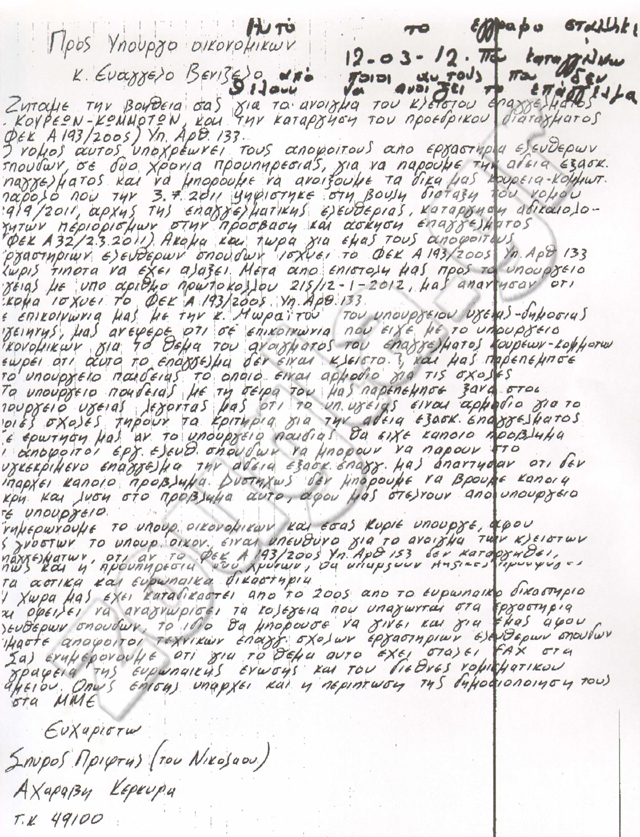 Αυτό το έγγραφο στάλθηκε
12-03-12. που καταγγέλνω
από ποιοι αυτούς που δεν
θέλουν να ανοιξει το επάγγελμα
Προς Υπουργο οικονομικων
κ. Ευαγγελο Βενιζελο
Ζηταμε την βοηθεια σας για το ανοιγμα του κλειστου επαγγελματος
ΚΟΥΡΕΩΝ-ΚΟΜΜΩΤΩΝ, και την καταργηση του προεδρικου διαταγματος
ΦΕΚ Α193/2005) Υπ. Αρθ. 133.
Ο νομος αυτος υποχρεωνει τους αποφοιτους απο εργαστηρια ελευθερων
σπουδων, σε δυο χρονια προυπηρεσιας, για να παρουμε την αδεια εξασκ.
παγγελματος και να μπορουμε να ανοιξουμε τα δικα μας κουρεια-κομμωτ.
παρολο που την 3.7.2011 ψηφιστηκε στη βουλη διαταξη του νομου
1919/2011, αρχης της επαγγελματικης ελευθεριας, καταργηση αδικαιολο-
γητων περιορισμων στην προσβαση και ασκηση επαγγελματος
ΦΕΚ Α32/2.3.2011) Ακομα και τωρα για εμας τους αποφοιτους
ργαστηριων ελευθερων σπουδων ισχυει το ΦΕΚ Α193/2005 Υπ. Αρθ 133
χωρις τιποτα να εχει αλαξει. Μετα απο επιστολη μας προς το υπουργειο
γειας με υπο αριθμο πρωτοκολου 215/12-1-2012, μας απαντησαν οτι
κομα ισχυει το ΦΕΚ Α193/2005. Υπ. Αρθ 133.
ε επικοινωνια μας με την κ. Μωραιτου του υπουργειου υγειας-δημοσιας
γιεινης, μας ανεφερε οτι σε επικοινωνια που ειχε με το υπουργειο
ικονομικων για το θεμα του ανοιγματος του επαγγελματος κουρεων-κομμωτων
εωρει οτι αυτο το επαγγελμα δεν ειναι κλειστο. Ξ και μας παρεπεμπσε
το υπουργειο παιδειας το οποιο ειναι αρμοδιο για τις σχολες
Το υπουργειο παιδειας με τη σειρα του μας παρεπεμησε ξανα στοι
πουργειο υγειας λεγοντας μας οτι το υπ. υγειας ειναι αρμοδιο για το
ποιες σχολες τηρουν τα κριτηρια για την αδεια εξασκ. επαγγελματος
ε ερωτηση μας αν το υπουργειο παιδιας θα ειχε καποιο προβλημα
ι αποφοιτοι εργ. ελευθ. σπουδων να μπορουν να παρουν στο
υγκεκριμενο επαγγελμα την αδεια εξασκ. επαγγ. μας απαντησαν οτι δεν
παρχει καποιο προβλημα. Δυστηχως δεν μπορουμε να βρουμε καποια
κρη και λυση στο προβλημα αυτο αφου μας στελνουν απο υπουργειο
σε υπουργειο
νημερωνουμε το υπουρ. οικονομικων και εσας κυριε υπουργε, αφου
ς γνωστων το υπουρ. οικον. ειναι υπευθυνο για το ανοιγμα των κλειστων
παγγελματων, οτι αν το ΦΕΚ Α193/2005 Υπ. Αρθ 153 δεν καταργηθει,
πως και η προυπηρεσια 2 του χρονων, θα υπαρξουν
τα αστικα και ευρωπαικα δικαστηρια
ι Χωρα μας εχει καταδικαστει απο το 2005 απο το ευρωπαικο δικαστηριο
αι οφειλει να αναγνωρισει τα κολεγεια που υπαγωνται στα εργαστηρια
λευθερων σπουδων, το ιδιο θα μπορουσε να γινει και για εμας αφου
ιμαστε αποφοιτοι τεχνικων επαγγ. σχολων εργαστηριων ελευθερων σπουδων
Σας ενημερονουμε οτι για το θεμα αυτο εχει σταλει FAX στα
γραφεια της ευρωπαικης ενωσης και του διεθνες νομισματικου
αμειου. Οπως επισης υπαρχει και η περιπτωση της δημοσιοποιηση τους
στα ΜΜΕ
Ευχαριστω
Σπυρος Πριφτης (του Νικολαου)
Αχαραβη Κερκυρα
Τ.Κ 49100